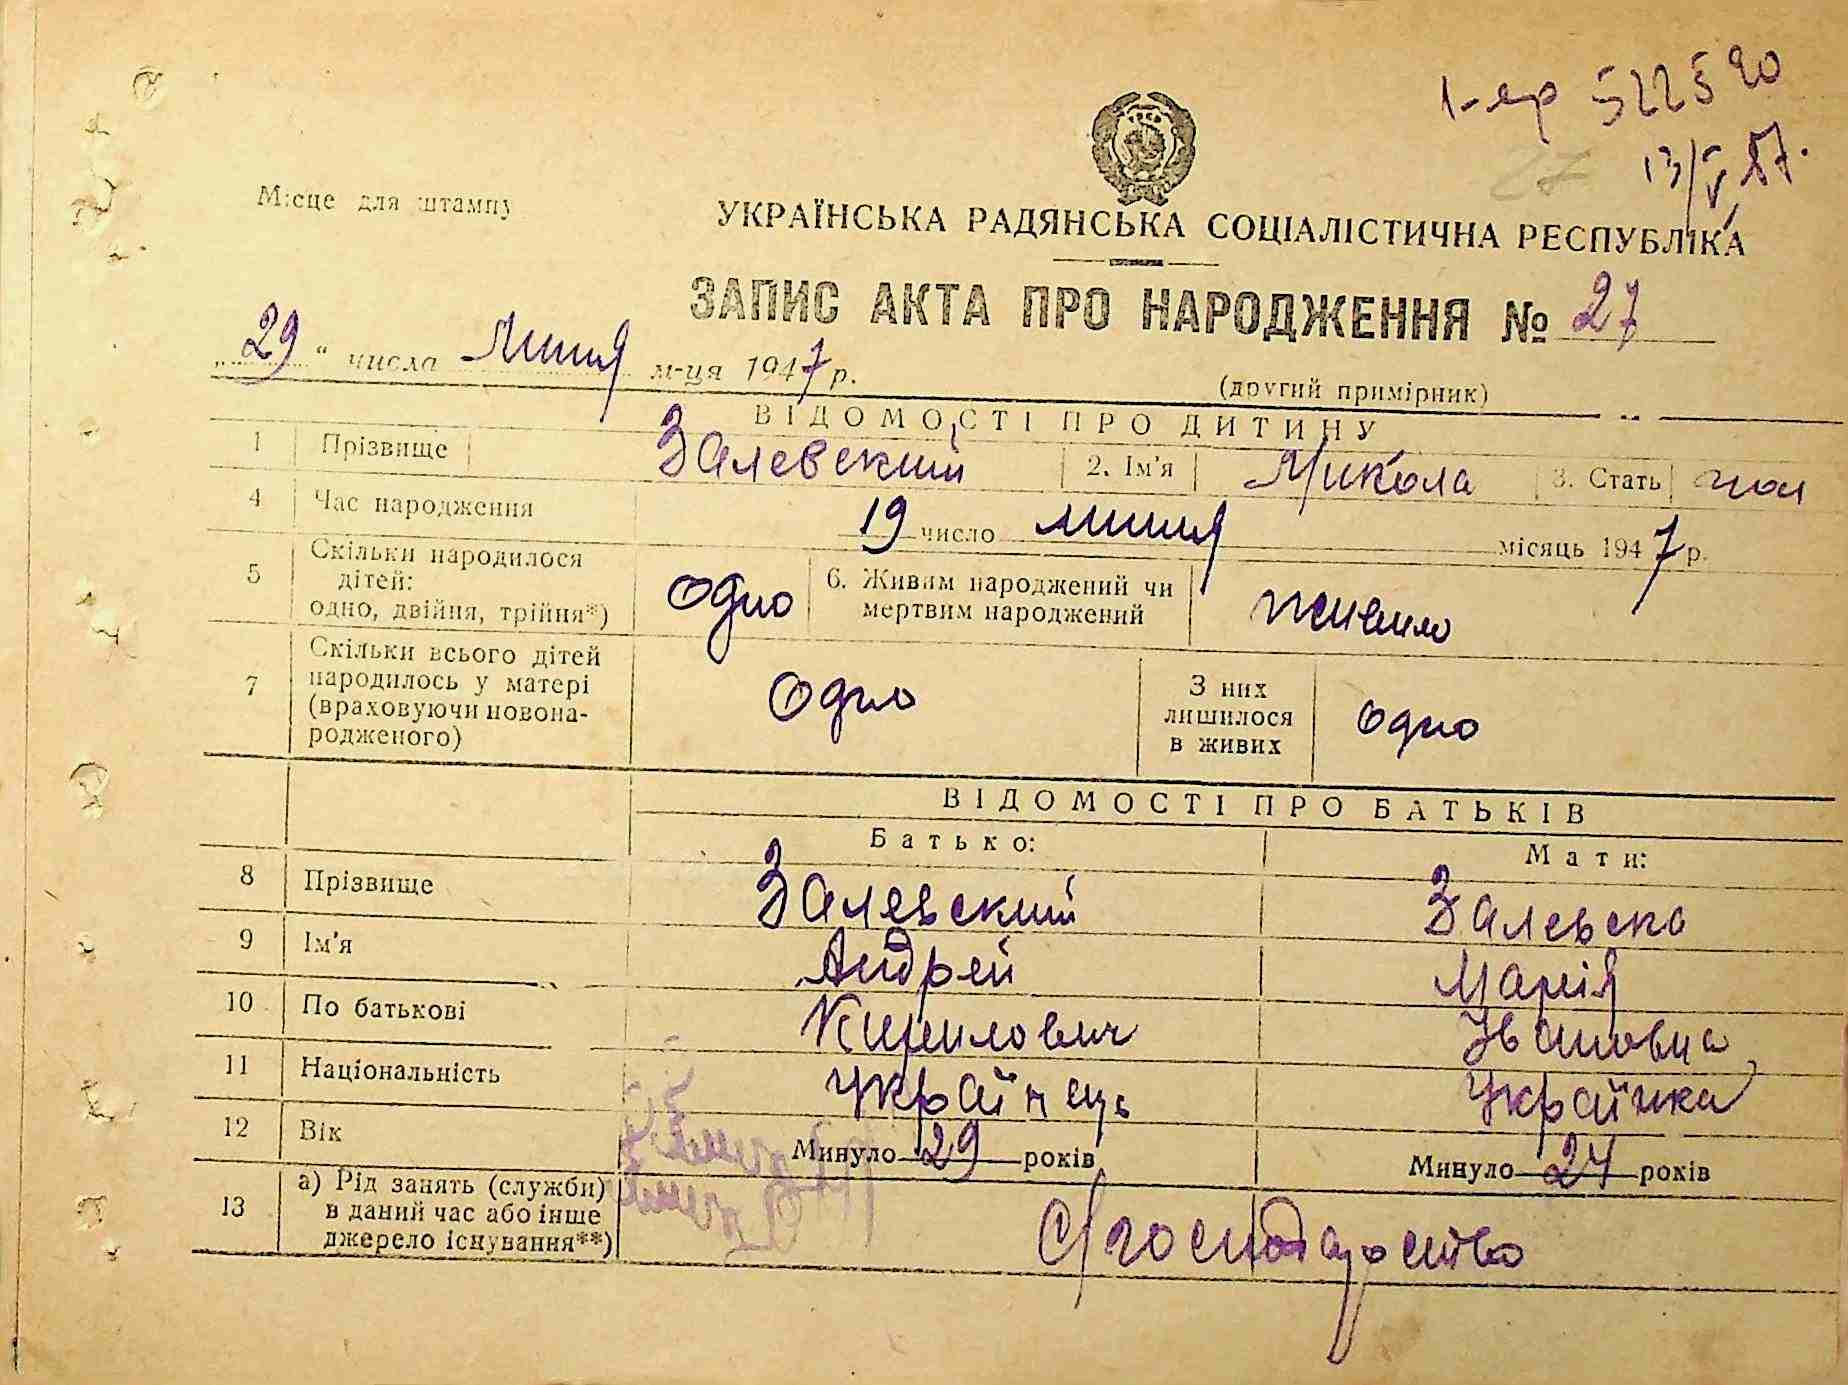 1-яр 522590
13/V 87.
27
Місце для штампу
УКРАЇНСЬКА РАДЯНСЬКА СОЦІАЛІСТИЧНА РЕСПУБЛІКА
ЗАПИС АКТА ПРО НАРОДЖЕННЯ № 27
„29“ числа липня м-ця 1947 р.
(другий примірник)
ВІДОМОСТІ ПРО ДИТИНУ
1 Прізвище Залевский 2. Ім'я Микола 3. Стать чол
4 Час народження 19 число липня місяць 1947 р.
5 Скільки народилося дітей: одно, двійня, трійня*) одно 6. Живим народжений чи мертвим народжений живим
7 Скільки всього дітей народилось у матері (враховуючи новона-родженого) Одно З них лишилося в живих одно
ВІДОМОСТІ ПРО БАТЬКІВ
Батько: Мати:
8 Прізвище Залевский Залевска
9 Ім'я Андрей Марія
10 По батькові Кирилович Івановна
11 Національність Українець Українка
12 Вік Минуло 29 років Минуло 24 років
13 а) Рід занять (служби) в даний час або інше джерело існування**) С/господарство